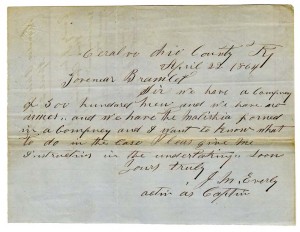 Ceralvo Ohio County Ky
April 22 1864
Govener Bramlet
Sir we have a Compney
of 300 hundred men and we have no
armes. and we have the malishia formed
in a Compney and I want to know what
to do in the Case Pleas give me
Instruction in the undertakings soon
Yours truly
J. M. Everly
actin as Captin